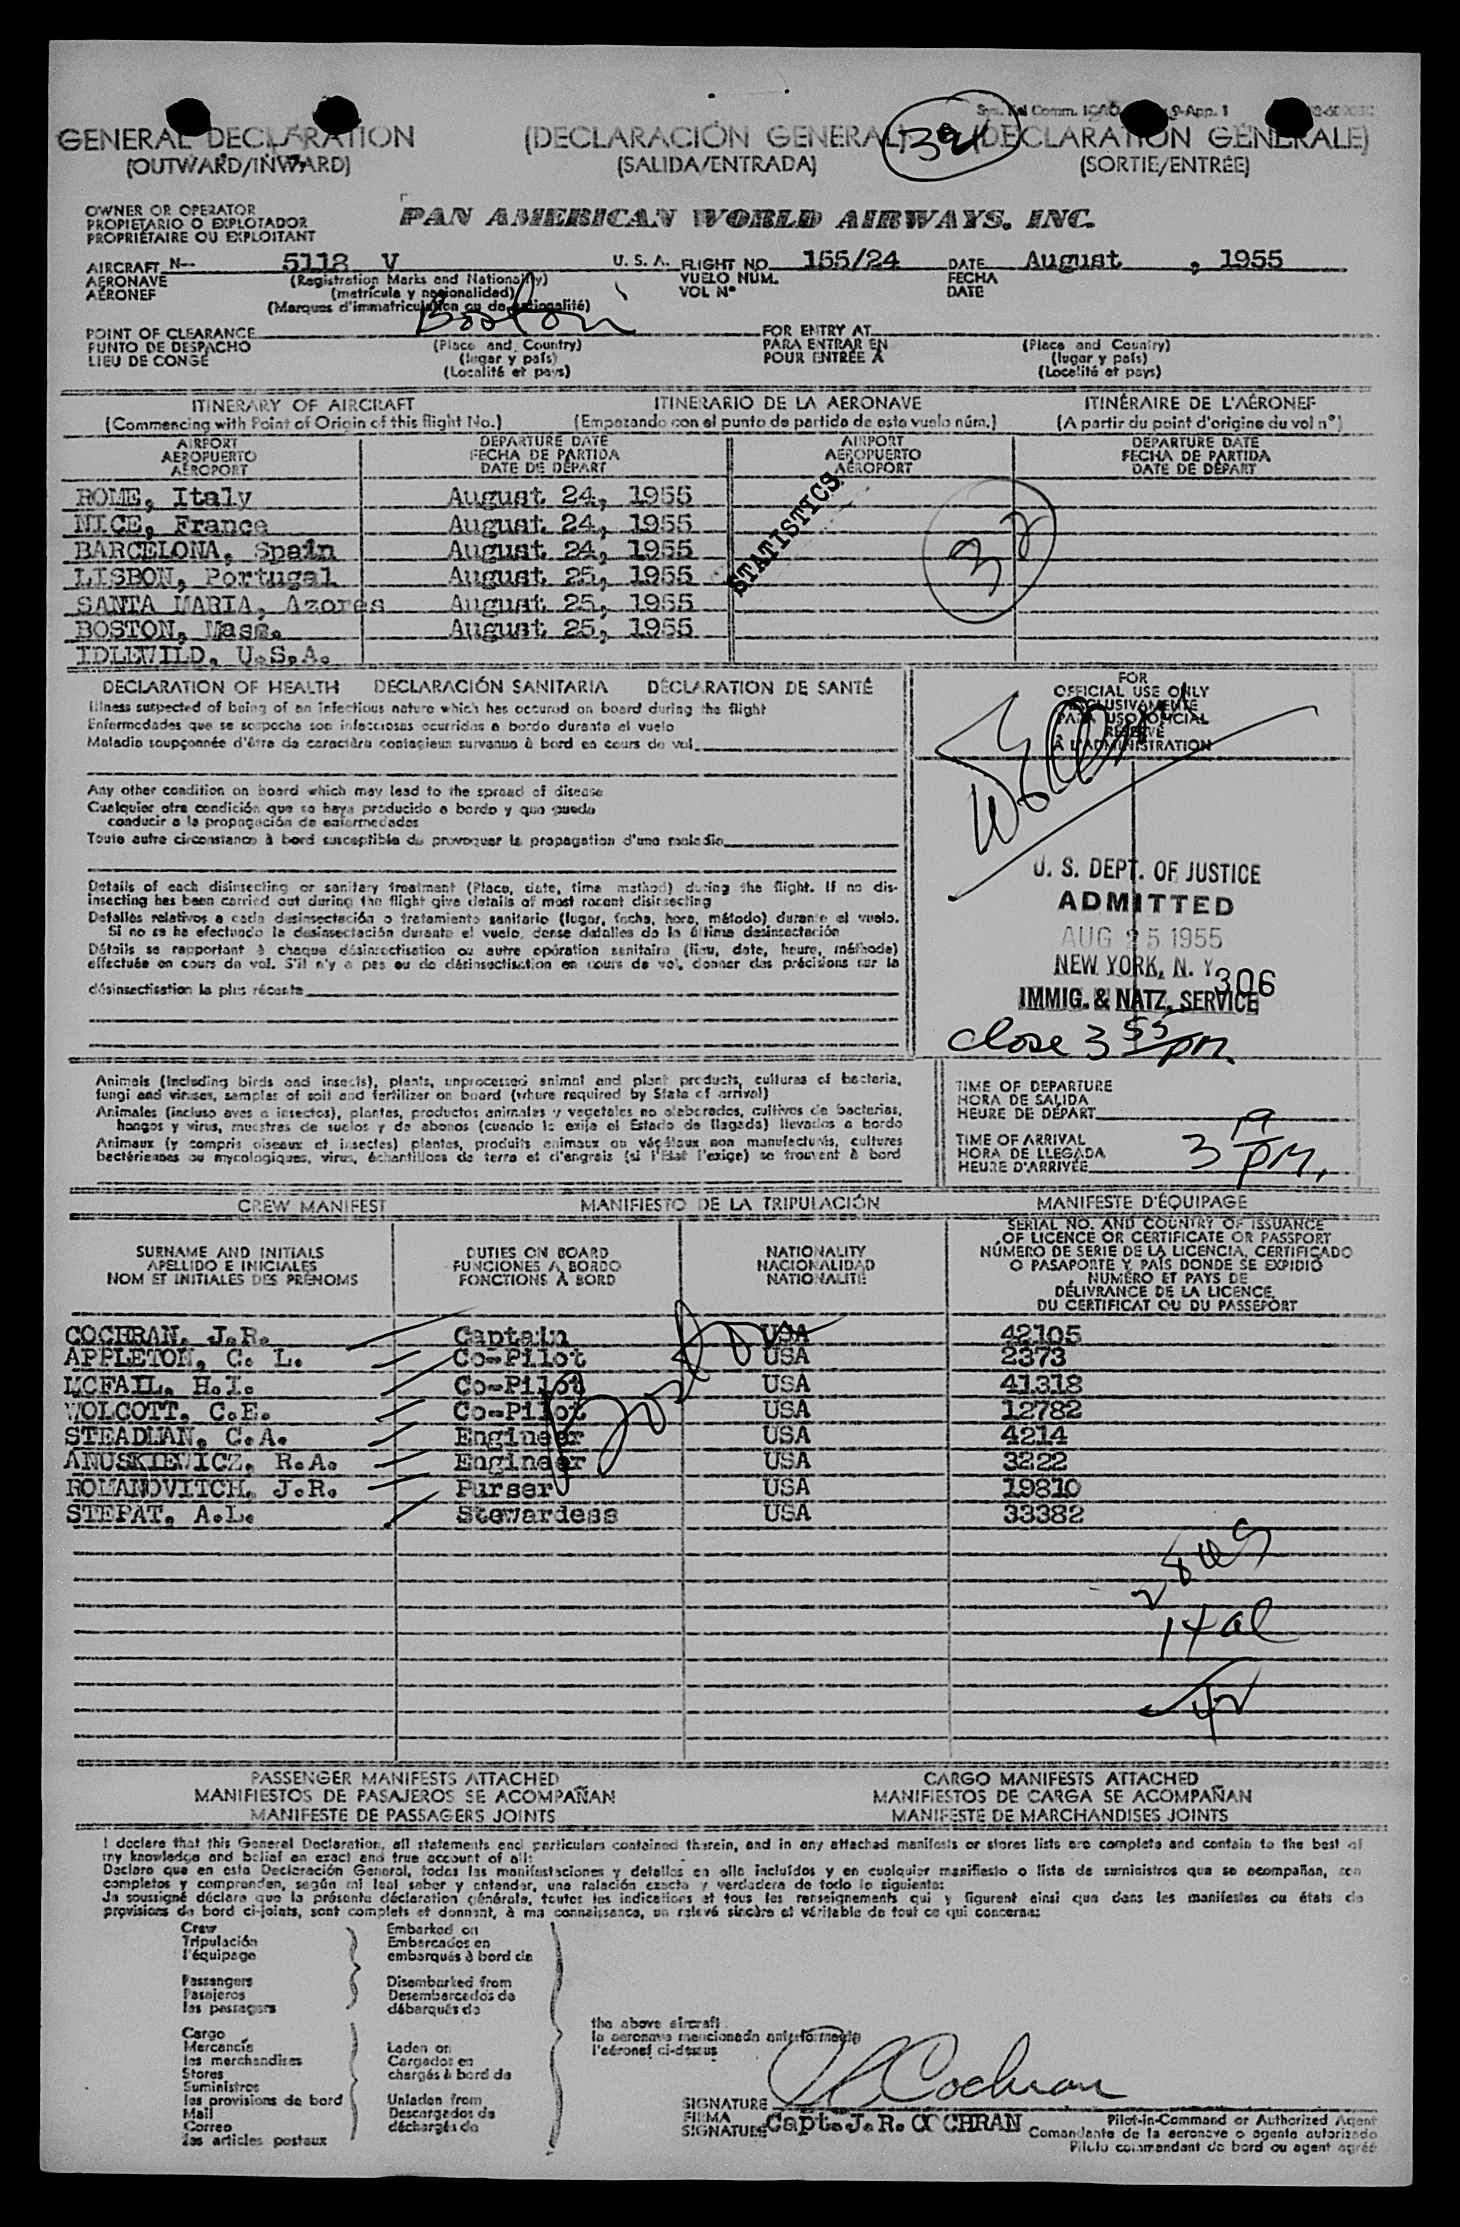 GENERAL DECLARATION (DECLARACIÓN GENERAL) (DECLARATION GÉNÉRALE)
(OUTWARD/INWARD) (SALIDA/ENTRADA) (SORTIE/ENTRÉE)
OWNER OR OPERATOR
PROPIETARIO O EXPLOTADOR
PROPRIÉTAIRE OU EXPLOITANT
PAN AMERICAN WORLD AIRWAYS, INC.
AIRCRAFT N-- 5118 V U. S. A. FLIGHT NO. 155/24 DATE August , 1955
AERONAVE (Registration Marks and Nationality) VUELO NUM. FECHA
AÉRONEF (matrícula y nacionalidad) VOL Nº DATE
(Marques d'immatriculation ou de nationalité)
Boston
POINT OF CLEARANCE FOR ENTRY AT
PUNTO DE DESPACHO (Place and Country) PARA ENTRAR EN (Place and Country)
LIEU DE CONGÉ (lugar y país) POUR ENTRÉE À (lugar y país)
(Localité et pays) (Localité et pays)
ITINERARY OF AIRCRAFT ITINERARIO DE LA AERONAVE ITINÉRAIRE DE L'AÉRONEF
(Commencing with Point of Origin of this flight No.) (Empezando con el punto de partida de este vuelo núm.) (A partir du point d'origine du vol nº)
AIRPORT DEPARTURE DATE AIRPORT DEPARTURE DATE
AEROPUERTO FECHA DE PARTIDA AEROPUERTO FECHA DE PARTIDA
AÉROPORT DATE DE DÉPART AÉROPORT DATE DE DÉPART
ROME, Italy August 24, 1955
NICE, France August 24, 1955
BARCELONA, Spain August 24, 1955
LISBON, Portugal August 25, 1955
SANTA MARIA, Azores August 25, 1955
BOSTON, Mass. August 25, 1955
IDLEWILD, U.S.A.
STATISTICS
32
DECLARATION OF HEALTH DECLARACIÓN SANITARIA DÉCLARATION DE SANTÉ
Illness suspected of being of an infectious nature which has occured on board during the flight
Enfermedades que se sospecha son infecciosas ocurridas a bordo durante el vuelo
Maladie soupçonnée d'être de caractère contagieux survenue à bord en cours de vol
Any other condition on board which may lead to the spread of disease
Cualquier otra condición que se haya producido a bordo y que pueda
conducir a la propagación de enfermedades
Toute autre circonstance à bord susceptible de provoquer la propagation d'une maladie
Details of each disinsecting or sanitary treatment (Place, date, time method) during the flight. If no dis-
insecting has been carried out during the flight give details of most recent disinsecting
Detalles relativos a cada desinsectación o tratamiento sanitario (lugar, fecha, hora, método) durante el vuelo.
Si no se ha efectuado la desinsectación durante el vuelo, dense detalles de la última desinsectación
Détails se rapportant à chaque désinsectisation ou autre opération sanitaire (lieu, date, heure, méthode)
effectuée en cours de vol. S'il n'y a pas eu de désinsectisation en cours de vol, donner des précisions sur la
désinsectisation la plus récente
FOR
OFFICIAL USE ONLY
EXCLUSIVAMENTE
PARA USO OFICIAL
RÉSERVÉ
À L'ADMINISTRATION
U. S. DEPT. OF JUSTICE
ADMITTED
AUG 25 1955
NEW YORK, N. Y. 306
IMMIG. & NATZ. SERVICE
close 3 55 pm
Animals (including birds and insects), plants, unprocessed animal and plant products, cultures of bacteria,
fungi and viruses, samples of soil and fertilizer on board (where required by State of arrival)
Animales (incluso aves e insectos), plantas, productos animales y vegetales no elaborados, cultivos de bacterias,
hongos y virus, muestras de suelos y de abonos (cuando lo exija el Estado de llegada) llevados a bordo
Animaux (y compris oiseaux et insectes) plantes, produits animaux ou végétaux non manufacturés, cultures
bactériennes ou mycologiques, virus, échantillons de terre et d'engrais (si l'État l'exige) se trouvant à bord
TIME OF DEPARTURE
HORA DE SALIDA
HEURE DE DÉPART
TIME OF ARRIVAL
HORA DE LLEGADA
HEURE D'ARRIVÉE 3 PM.
CREW MANIFEST MANIFIESTO DE LA TRIPULACIÓN MANIFESTE D'ÉQUIPAGE
SURNAME AND INITIALS DUTIES ON BOARD NATIONALITY SERIAL NO. AND COUNTRY OF ISSUANCE
APELLIDO E INICIALES FUNCIONES A BORDO NACIONALIDAD OF LICENCE OR CERTIFICATE OR PASSPORT
NOM ET INITIALES DES PRÉNOMS FONCTIONS À BORD NATIONALITÉ NÚMERO DE SERIE DE LA LICENCIA, CERTIFICADO
O PASAPORTE Y PAÍS DONDE SE EXPIDIÓ
NUMÉRO ET PAYS DE
DÉLIVRANCE DE LA LICENCE,
DU CERTIFICAT OU DU PASSEPORT
COCHRAN, J.R. Captain USA 42105
APPLETON, C. L. Co-Pilot USA 2373
MCFAIL, H.I. Co-Pilot USA 41318
WOLCOTT, C.E. Co-Pilot USA 12782
STEADMAN, C.A. Engineer USA 4214
ANUSKIEWICZ, R.A. Engineer USA 3222
ROMANOVITCH, J.R. Purser USA 19810
STEPAT, A.L. Stewardess USA 33382
Boston
14 al
PASSENGER MANIFESTS ATTACHED CARGO MANIFESTS ATTACHED
MANIFIESTOS DE PASAJEROS SE ACOMPAÑAN MANIFIESTOS DE CARGA SE ACOMPAÑAN
MANIFESTE DE PASSAGERS JOINTS MANIFESTE DE MARCHANDISES JOINTS
I declare that this General Declaration, all statements and particulars contained therein, and in any attached manifests or stores lists are complete and contain to the best of
my knowledge and belief an exact and true account of all:
Declaro que en esta Declaración General, todas las manifestaciones y detalles en ella incluídos y en cualquier manifiesto o lista de suministros que se acompañan, son
completos y comprenden, según mi leal saber y entender, una relación exacta y verdadera de todo lo siguiente:
Je soussigné déclare que la présente déclaration générale, toutes les indications et tous les renseignements qui y figurent ainsi que dans les manifestes ou états de
provisions de bord ci-joints, sont complets et donnent, à ma connaissance, un relevé sincère et véritable de tout ce qui concerne:
Crew Embarked on
Tripulación Embarcados en
l'équipage embarqués à bord de
Passengers Disembarked from
Pasajeros Desembarcados de
les passagers débarqués de
the above aircraft
la aeronave mencionada anteriormente
l'aéronef ci-dessus
Cargo
Mercancía Laden on
les marchandises Cargados en
Stores chargés à bord de
Suministros
les provisions de bord Unladen from
Mail Descargados de
Correo déchargés de
les articles postaux
J R Cochran
SIGNATURE
FIRMA
SIGNATURE Capt. J. R. COCHRAN
Pilot-in-Command or Authorized Agent
Comandante de la aeronave o agente autorizado
Pilote commandant de bord ou agent agréé